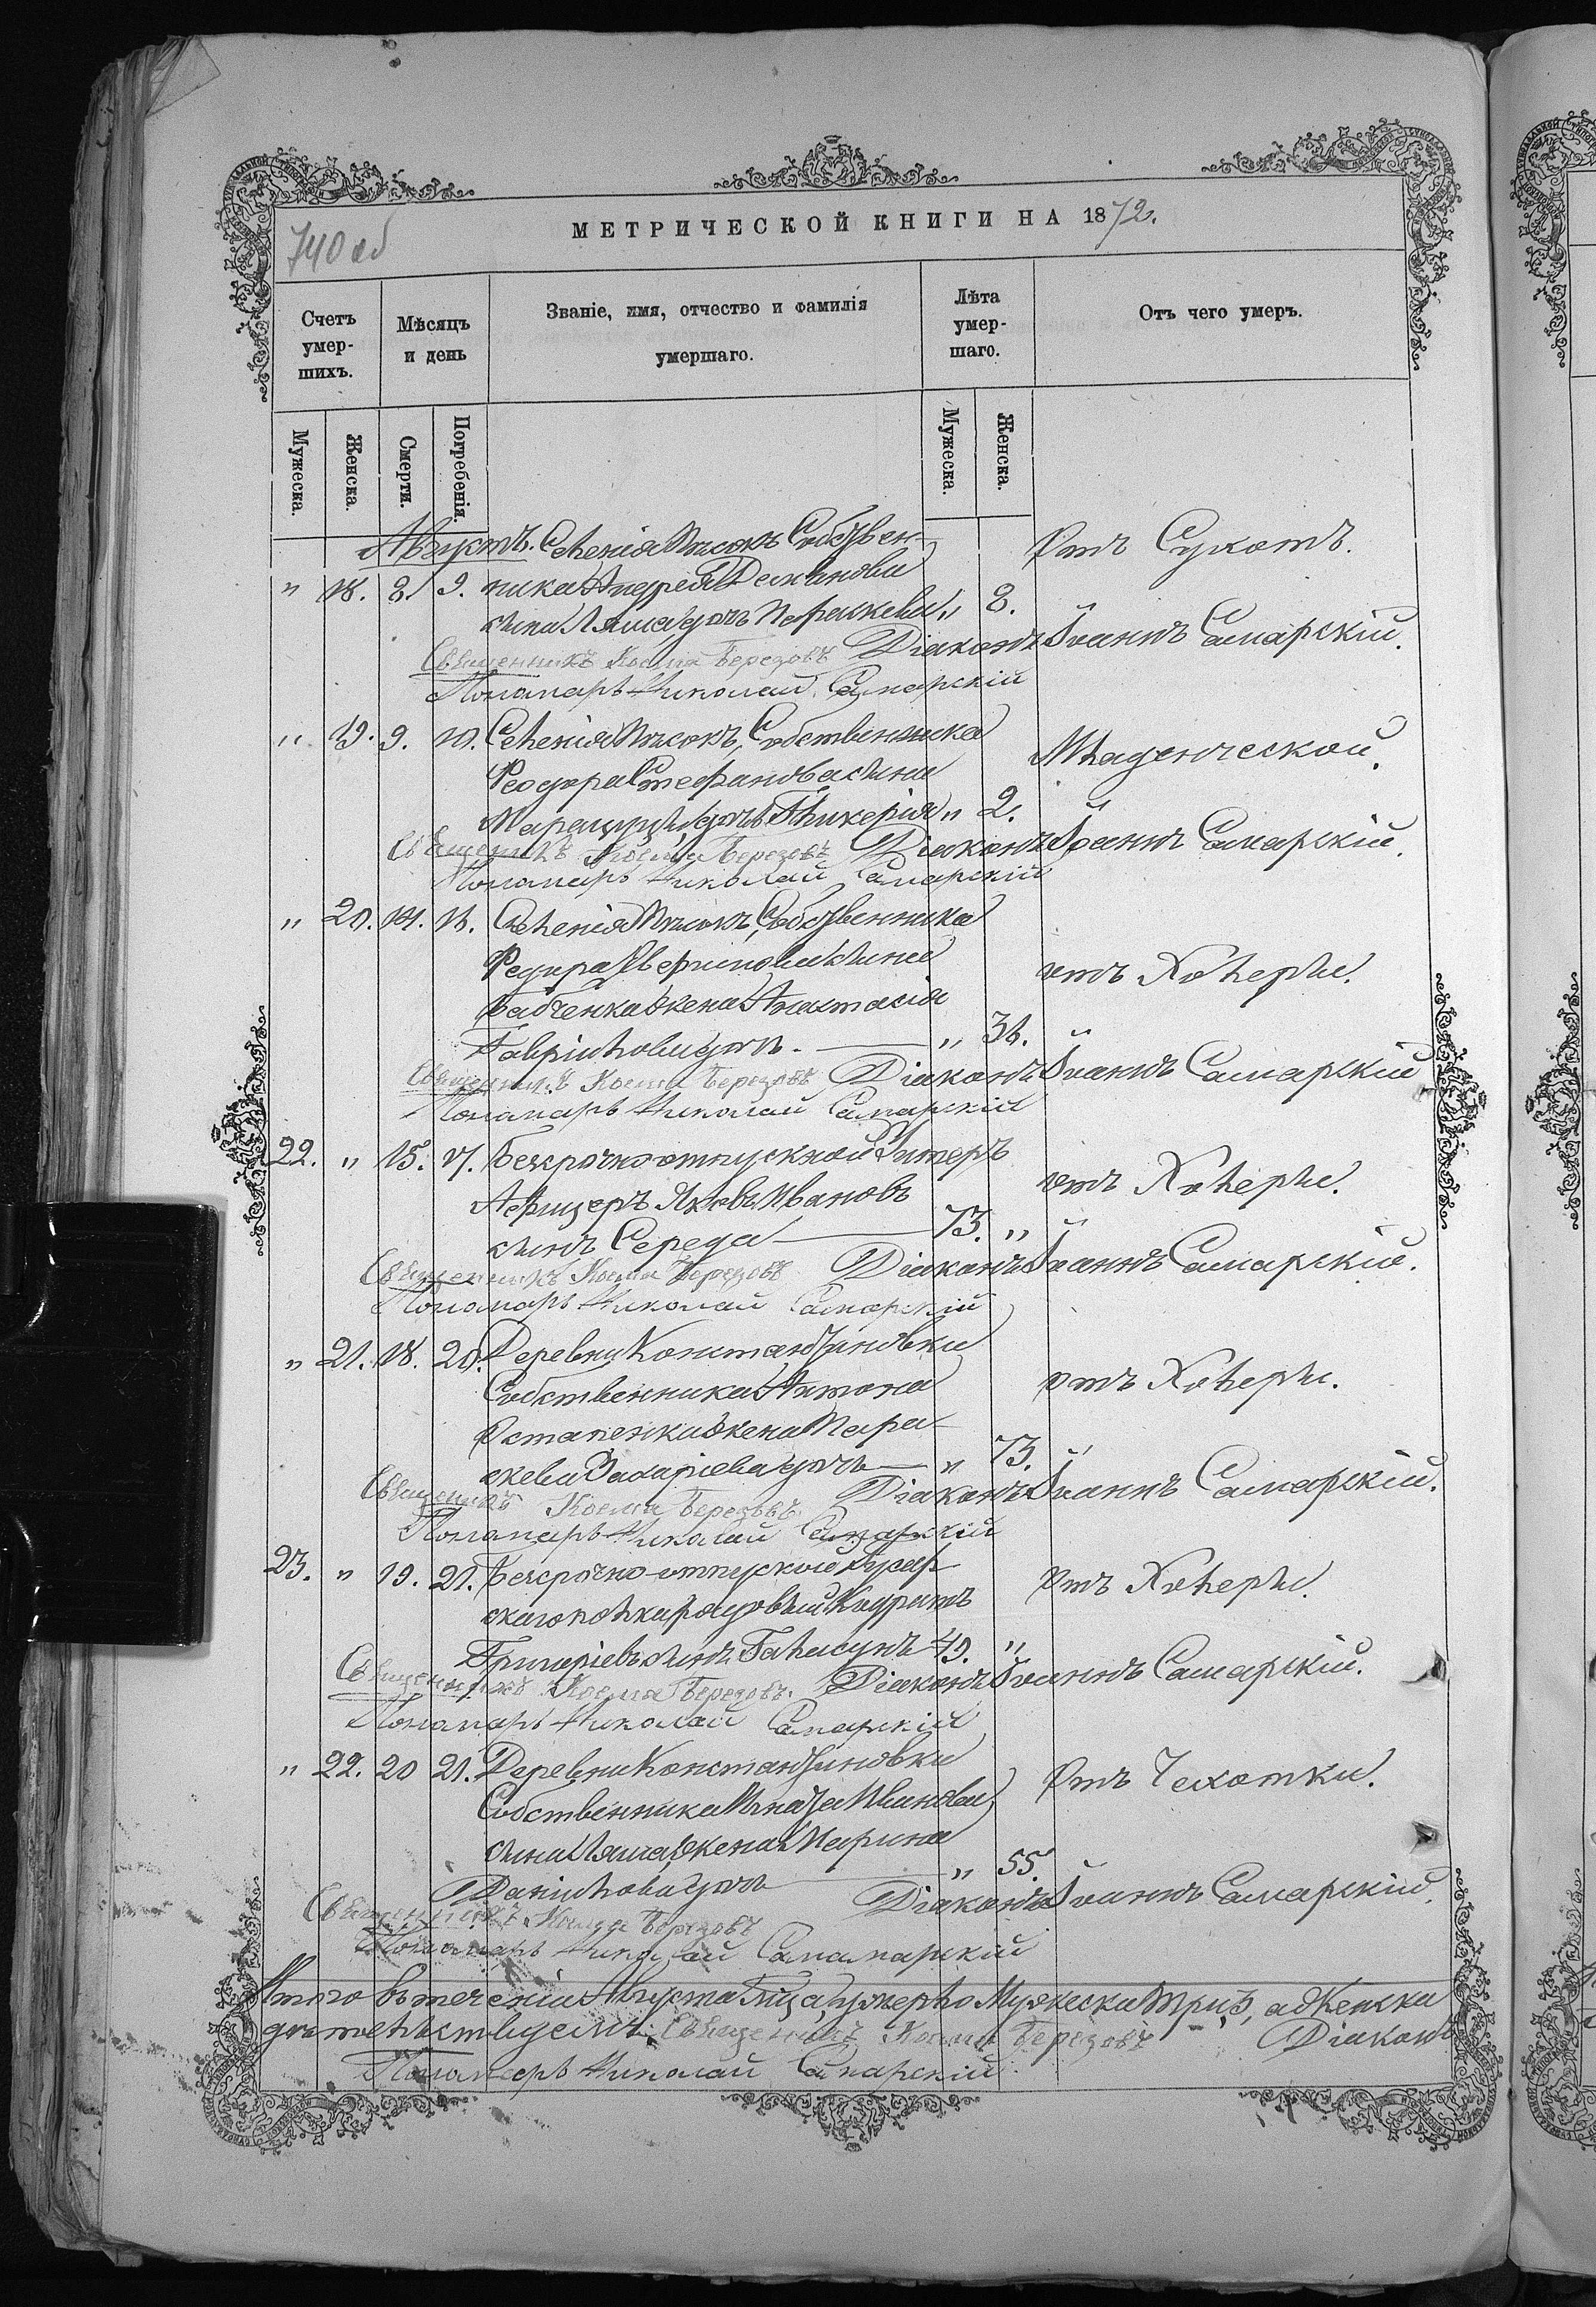 740 об
МЕТРИЧЕСКОЙ КНИГИ НА 1872.
Счетъ умер-шихъ.
Мѣсяцъ и день
Званіе, имя, отчество и фамилія умершаго.
Лѣта умер-шаго.
Отъ чего умеръ.
Мужеска.
Женска.
Смерти.
Погребенія.
Мужеска.
Женска.
Августъ. Селенія Пѣсокъ Собствен- Отъ Сухотъ.
" 18. 8. 9. ника Андрея Демьянова
сына Ляша дочь Параскева " 2.
Священникъ Косма Березовъ Діаконъ Іоаннъ Самарскій.
Пономарь Николай Самарскій
" 19. 9. 10. Селенія Пѣсокъ, Собственника Младенческой.
Феодора Стефанова сына
дочь Гликерія " 2.
Священникъ Косма Березовъ Діаконъ Іоаннъ Самарскій.
Пономарь Николай Самарскій
" 20. 14. 16. Селенія Пѣсокъ, Собственника
Федора сына отъ Холеры.
Бабченка жена Анастасія
Гаврилова дочь. " 36.
Священникъ Косма Березовъ Діаконъ Іоаннъ Самарскій
Пономарь Николай Самарскій
22. " 15. 17. Безсрочно отпускной Унтеръ отъ Холеры.
Афицеръ Яковъ Ивановъ
сынъ Середа 73. "
Священникъ Косма Березовъ Діаконъ Іоаннъ Самарскій.
Пономарь Николай Самарскій
" 21. 18. 20. Деревни Константиновки
Собственника Антона отъ Холеры.
Остапенка жена Пара-
скева Захаріева дочь " 73.
Священникъ Косма Березовъ Діаконъ Іоаннъ Самарскій.
Пономарь Николай Самарскій
23. " 19. 21. Безсрочно-отпускной Гусар- Отъ Холеры.
скаго полка рядовый Кодратъ
Григоріевъ сынъ 49. "
Священникъ Косма Березовъ. Діаконъ Іоаннъ Самарскій.
Пономарь Николай Самарскій
" 22. 20 21. Деревни Константиновки Отъ Чахотки.
Собственника Игната Иванова
сына Ляша жена Марина
Данилова дочь " 55.
Священникъ Косма Березовъ Діаконъ Іоаннъ Самарскій.
Пономарь Николай Самамарскій
Итого въ теченіи Августа м-ца умерло Мужеска три, а Женска
Священникъ Косма Березовъ Діаконъ
Пономарь Николай Самарскій